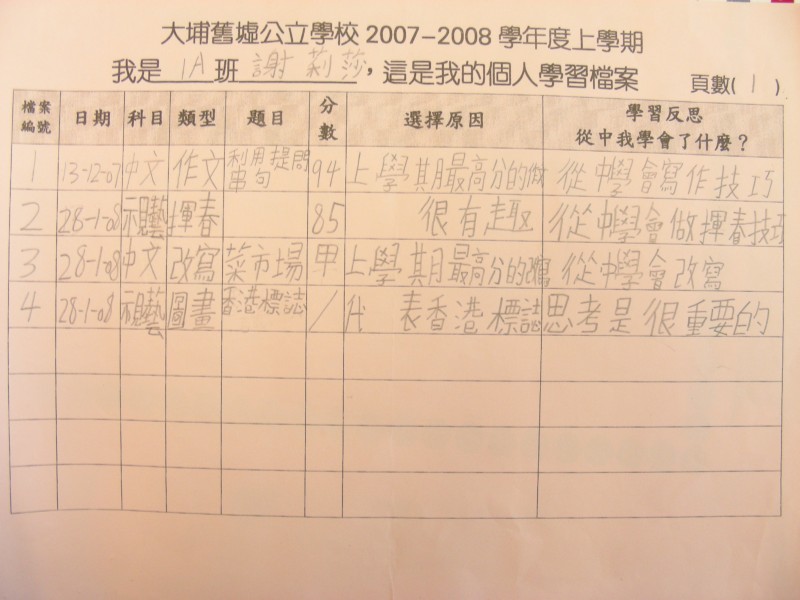 大埔舊墟公立學校 2007-2008 學年度上學期
我是 1A 班 謝莉莎，這是我的個人學習檔案 頁數( 1 )
檔案編號 日期 科目 類型 題目 分數 選擇原因 學習反思 從中我學會了什麼？
1 13-12-07 中文 作文 利用提問串句 94 上學期最高分的做 從中學會寫作技巧
2 28-1-08 視藝 揮春 85 很有趣 從中學會做揮春技巧
3 28-1-08 中文 改寫 菜市場 甲 上學期最高分的改寫 從中學會改寫
4 28-1-08 視藝 圖畫 香港標誌 / 代表香港標誌 思考是很重要的